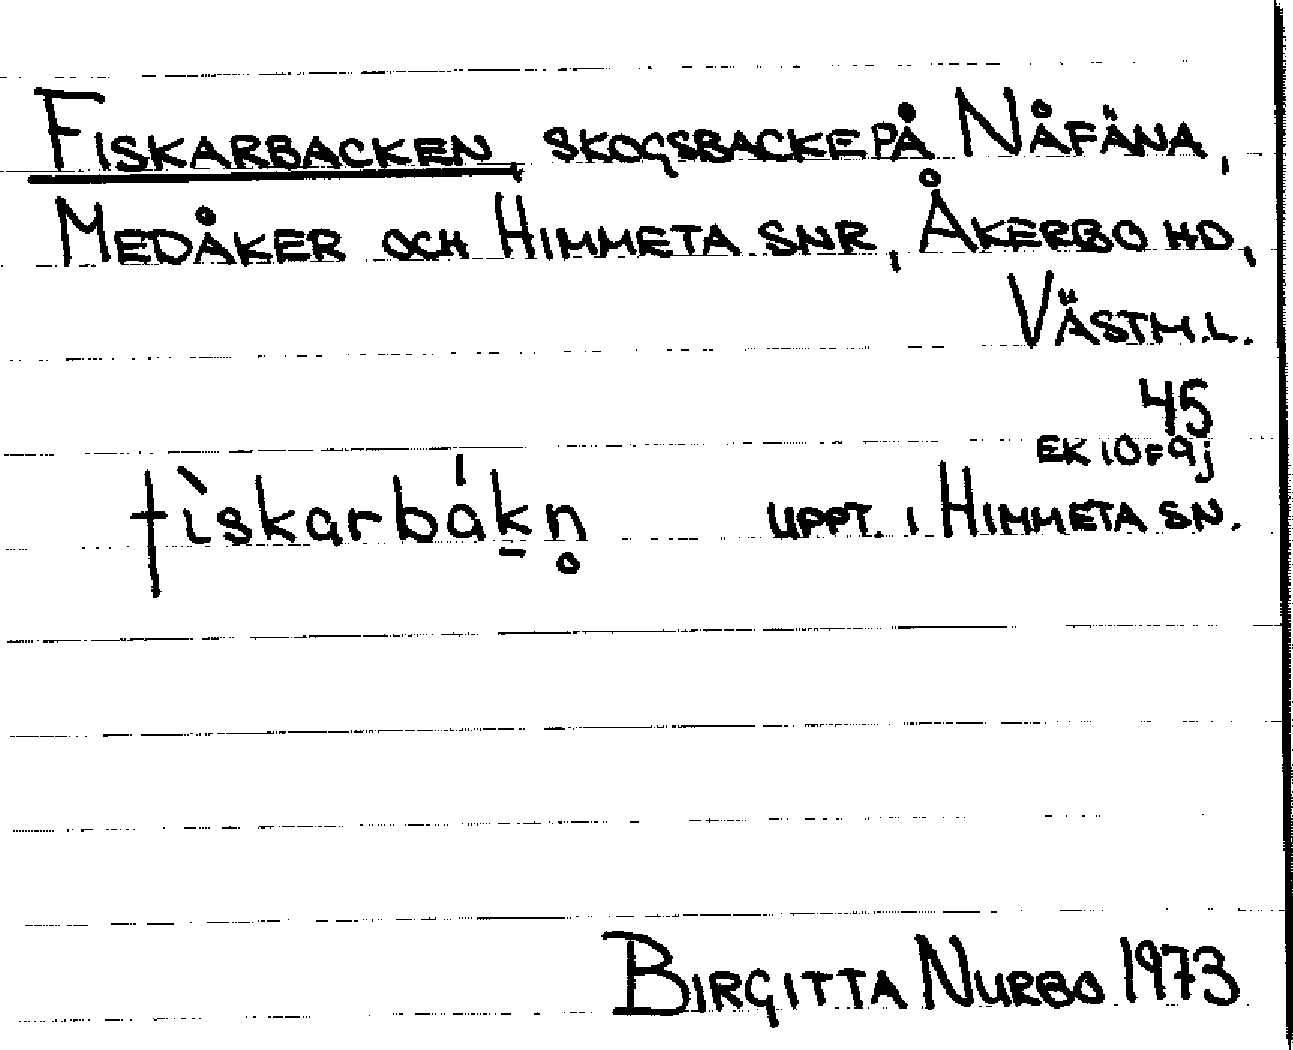 FISKARBACKEN, SKOGSBACKE PÅ NÅFÄNA,
MEDÅKER OCH HIMMETA SNR, ÅKERBO HD,
VÄSTM.L.
45
EK 10F9j
fìskarbák̲n̥ UPPT. I HIMMETA SN.
BIRGITTA NURBO 1973